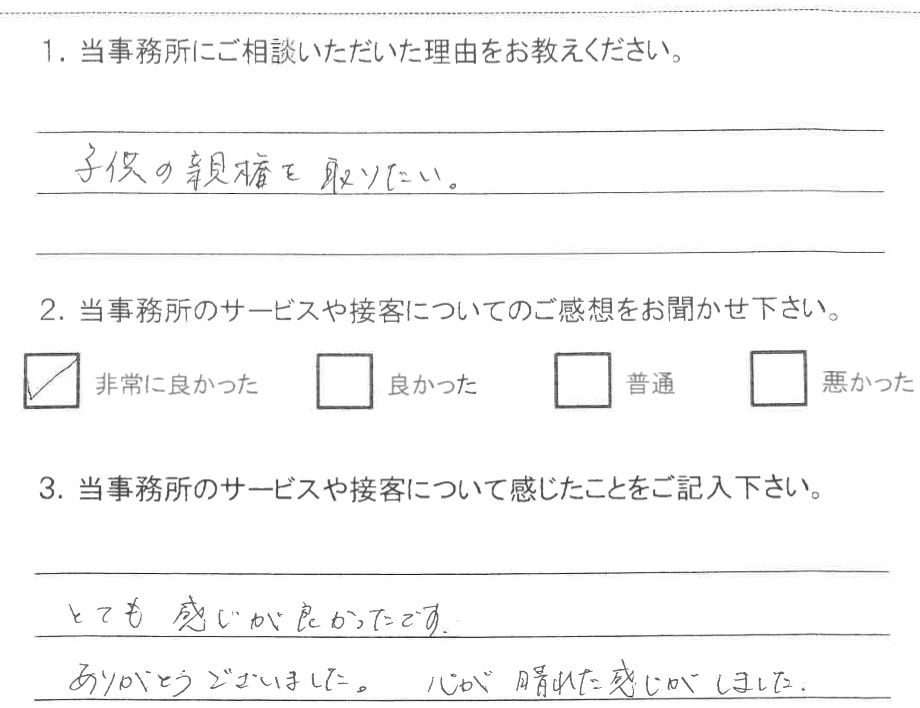 1. 当事務所にご相談いただいた理由をお教えください。
子供の親権を取りたい。
2. 当事務所のサービスや接客についてのご感想をお聞かせ下さい。
非常に良かった 良かった 普通 悪かった
3. 当事務所のサービスや接客について感じたことをご記入下さい。
とても感じが良かったです.
ありがとうございました。 心が晴れた感じがしました.